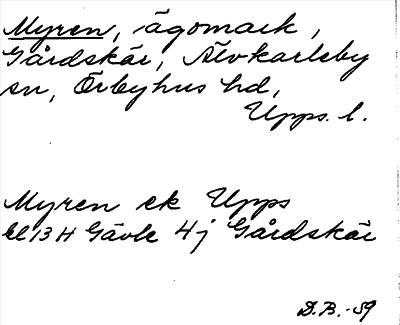 Myren, ägomark,
Gårdskär, Älvkarleby
sn, Örbyhus hd,
Upps. l.
Myren ek Upps
bl 13 H Gävle 4j Gårdskär
D.B. -59